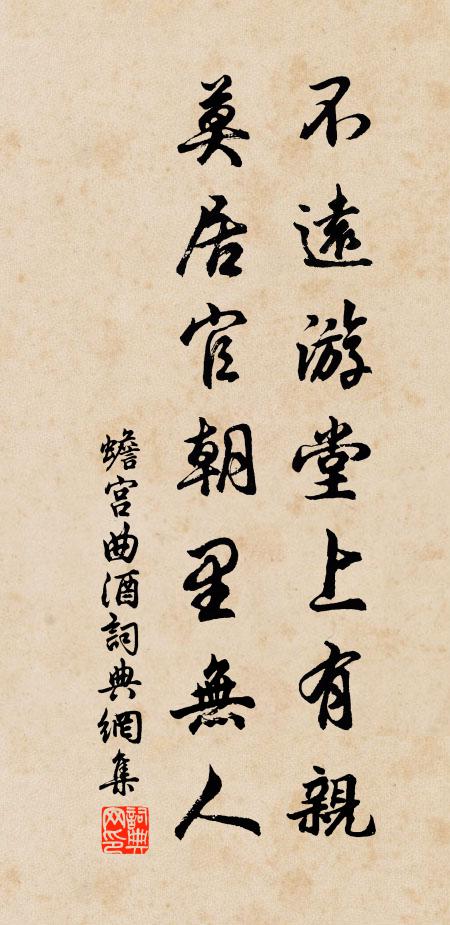 不遠游堂上有親
莫居官朝里無人
蟾宮曲酒詞典網集
詞典网印